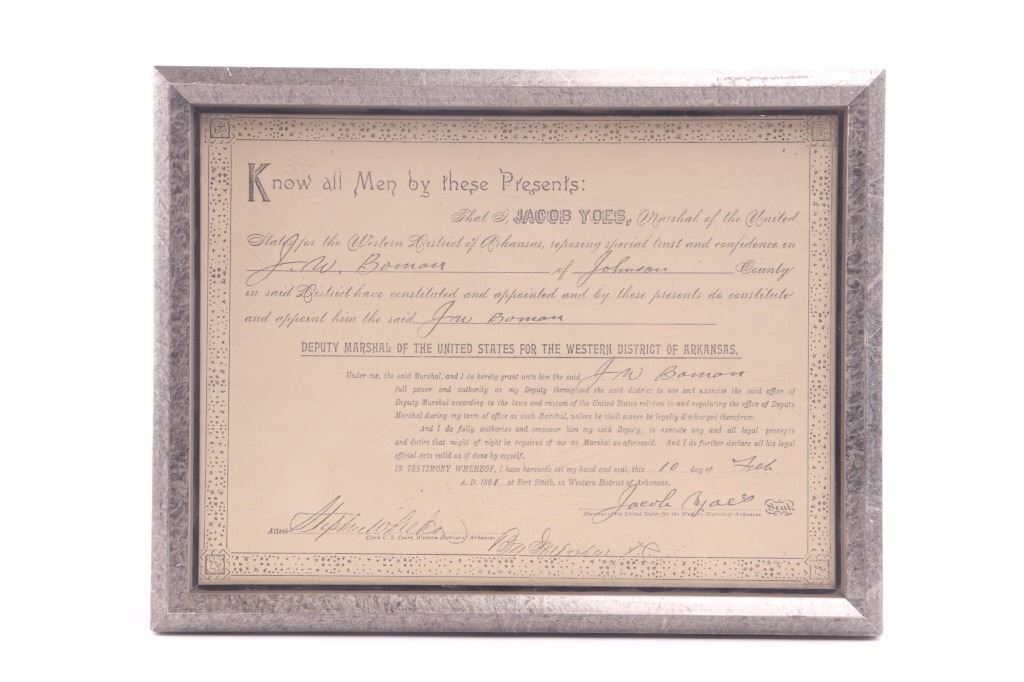 Know all Men by these Presents:
That I, JACOB YOES, Marshal of the United
States for the Western District of Arkansas, reposing special trust and confidence in
J. W. Boman of Johnson County
in said District have constituted and appointed and by these presents do constitute
and appoint him the said J W Boman
DEPUTY MARSHAL OF THE UNITED STATES FOR THE WESTERN DISTRICT OF ARKANSAS,
Under me, the said Marshal, and I do hereby grant unto him the said J W Boman
full power and authority as my Deputy throughout the said district to use and exercise the said office of
Deputy Marshal according to the laws and custom of the United States relating to and regulating the office of Deputy
Marshal during my term of office as such Marshal, unless he shall sooner be legally discharged therefrom.
And I do fully authorize and empower him my said Deputy, to execute any and all legal precepts
and duties that might of right be required of me as Marshal as aforesaid. And I do further declare all his legal
official acts valid as if done by myself.
IN TESTIMONY WHEREOF, I have hereunto set my hand and seal, this 10 day of Feb
A. D. 189 at Fort Smith, in Western District of Arkansas.
Jacob Yoes Seal
Marshal of the United States for the Western District of Arkansas.
Attest Stephen Wheeler
Clerk U. S. Court, Western District of Arkansas
By